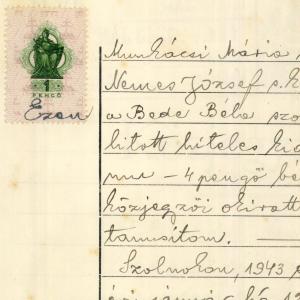 1
PENGŐ
Ezen
Munkácsi Mária
Nemes József p. k
a Bede Béla szo
lított hiteles kia
mu — 4 pengő bé
közjegyzői okiratt
tanusítom. —
Szolnokon, 1943